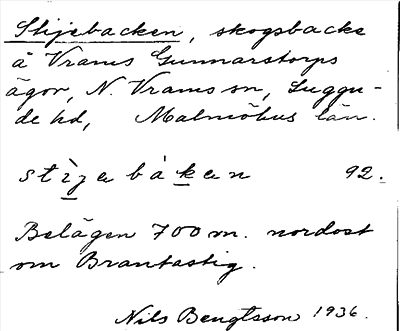 Stijebacken, skogsbacke
å Vrams Gunnarstorps
ägor, N. Vrams sn, Luggu-
de hd, Malmöhus län.
stìjebáken 92.
Belägen 700 m. nordost
om Brantastig.
Nils Bengtsson 1936.